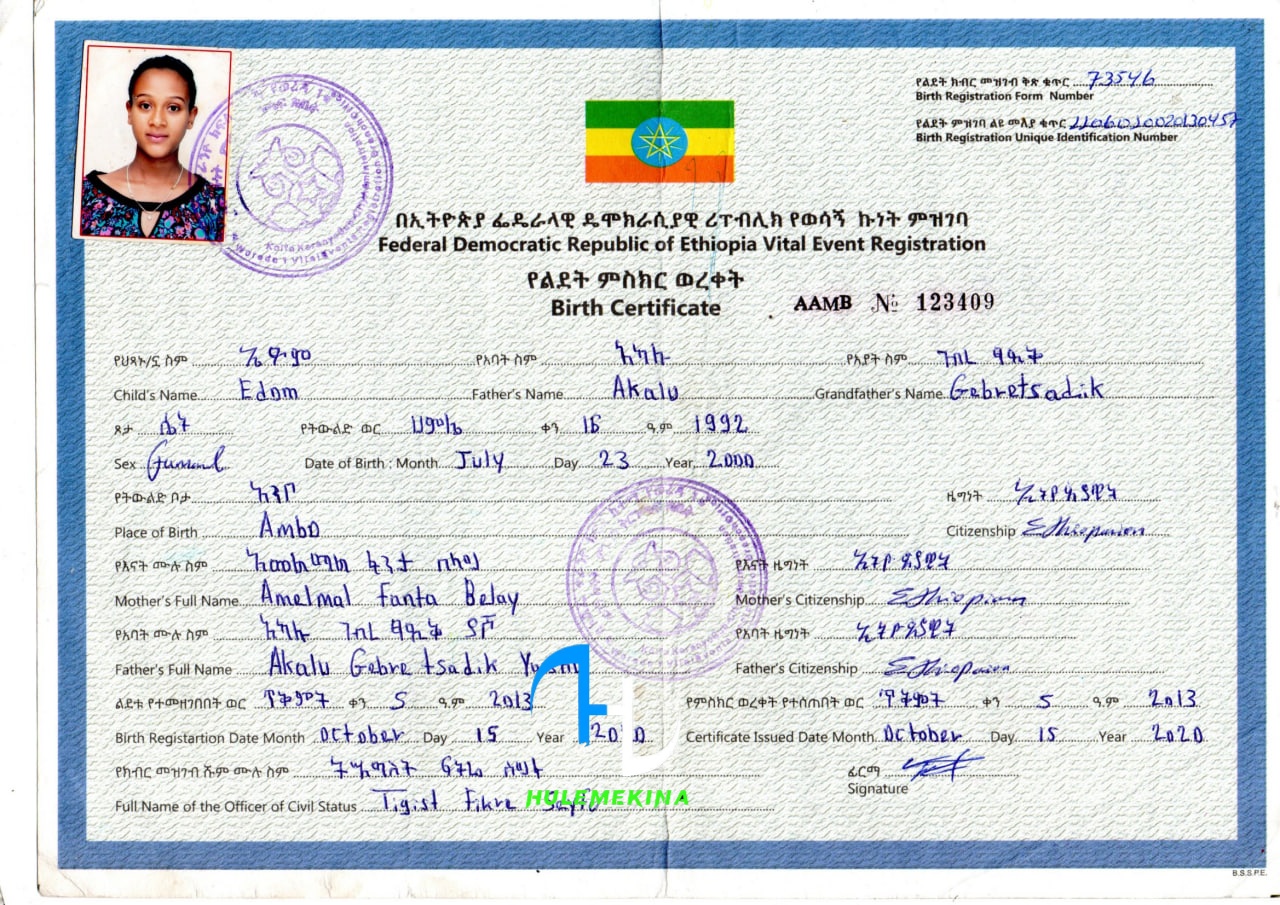 የልደት ክብር መዝገብ ቅጽ ቁጥር 73546
Birth Registration Form Number
የልደት ምዝገባ ልዩ መለያ ቁጥር
Birth Registration Unique Identification Number
በኢትዮጵያ ፌዴራላዊ ዴሞክራሲያዊ ሪፐብሊክ የወሳኝ ኩነት ምዝገባ
Federal Democratic Republic of Ethiopia Vital Event Registration
የልደት ምስክር ወረቀት
Birth Certificate
AAMB № 123409
የህጻኑ/ኗ ስም ኤዶም የአባት ስም አካሉ የአያት ስም ገብረ ፃዲቅ
Child's Name Edom Father's Name Akalu Grandfather's Name Gebretsadik
ጾታ ሴት የትውልድ ወር ሀምሌ ቀን 16 ዓ.ም 1992
Sex Date of Birth : Month July Day 23 Year 2000
የትውልድ ቦታ አምቦ ዜግነት ኢትዮጵያዊት
Place of Birth Ambo Citizenship Ethiopian
የእናት ሙሉ ስም አመልማል ፋንታ በላይ የእናት ዜግነት ኢትዮጵያዊት
Mother's Full Name Amelmal Fanta Belay Mother's Citizenship Ethiopian
የአባት ሙሉ ስም አካሉ ገብረ ፃዲቅ የአባት ዜግነት
Father's Full Name Akalu Gebretsadik Father's Citizenship Ethiopian
ልደቱ የተመዘገበበት ወር ጥቅምት ቀን 5 ዓ.ም 2013 የምስክር ወረቀት የተሰጠበት ወር ጥቅምት ቀን 5 ዓ.ም 2013
Birth Registartion Date Month October Day 15 Year 2020 Certificate Issued Date Month October Day 15 Year 2020
የክብር መዝገብ ሹም ሙሉ ስም ትዕግስት ፍቅሬ ፊርማ
Full Name of the Officer of Civil Status Tigist Fikre Signature
HULEMEKINA
B.S.S.P.E.